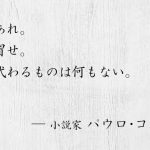 あれ。
習せ。
代わるものは何もない。
― 小説家 パウロ・コ